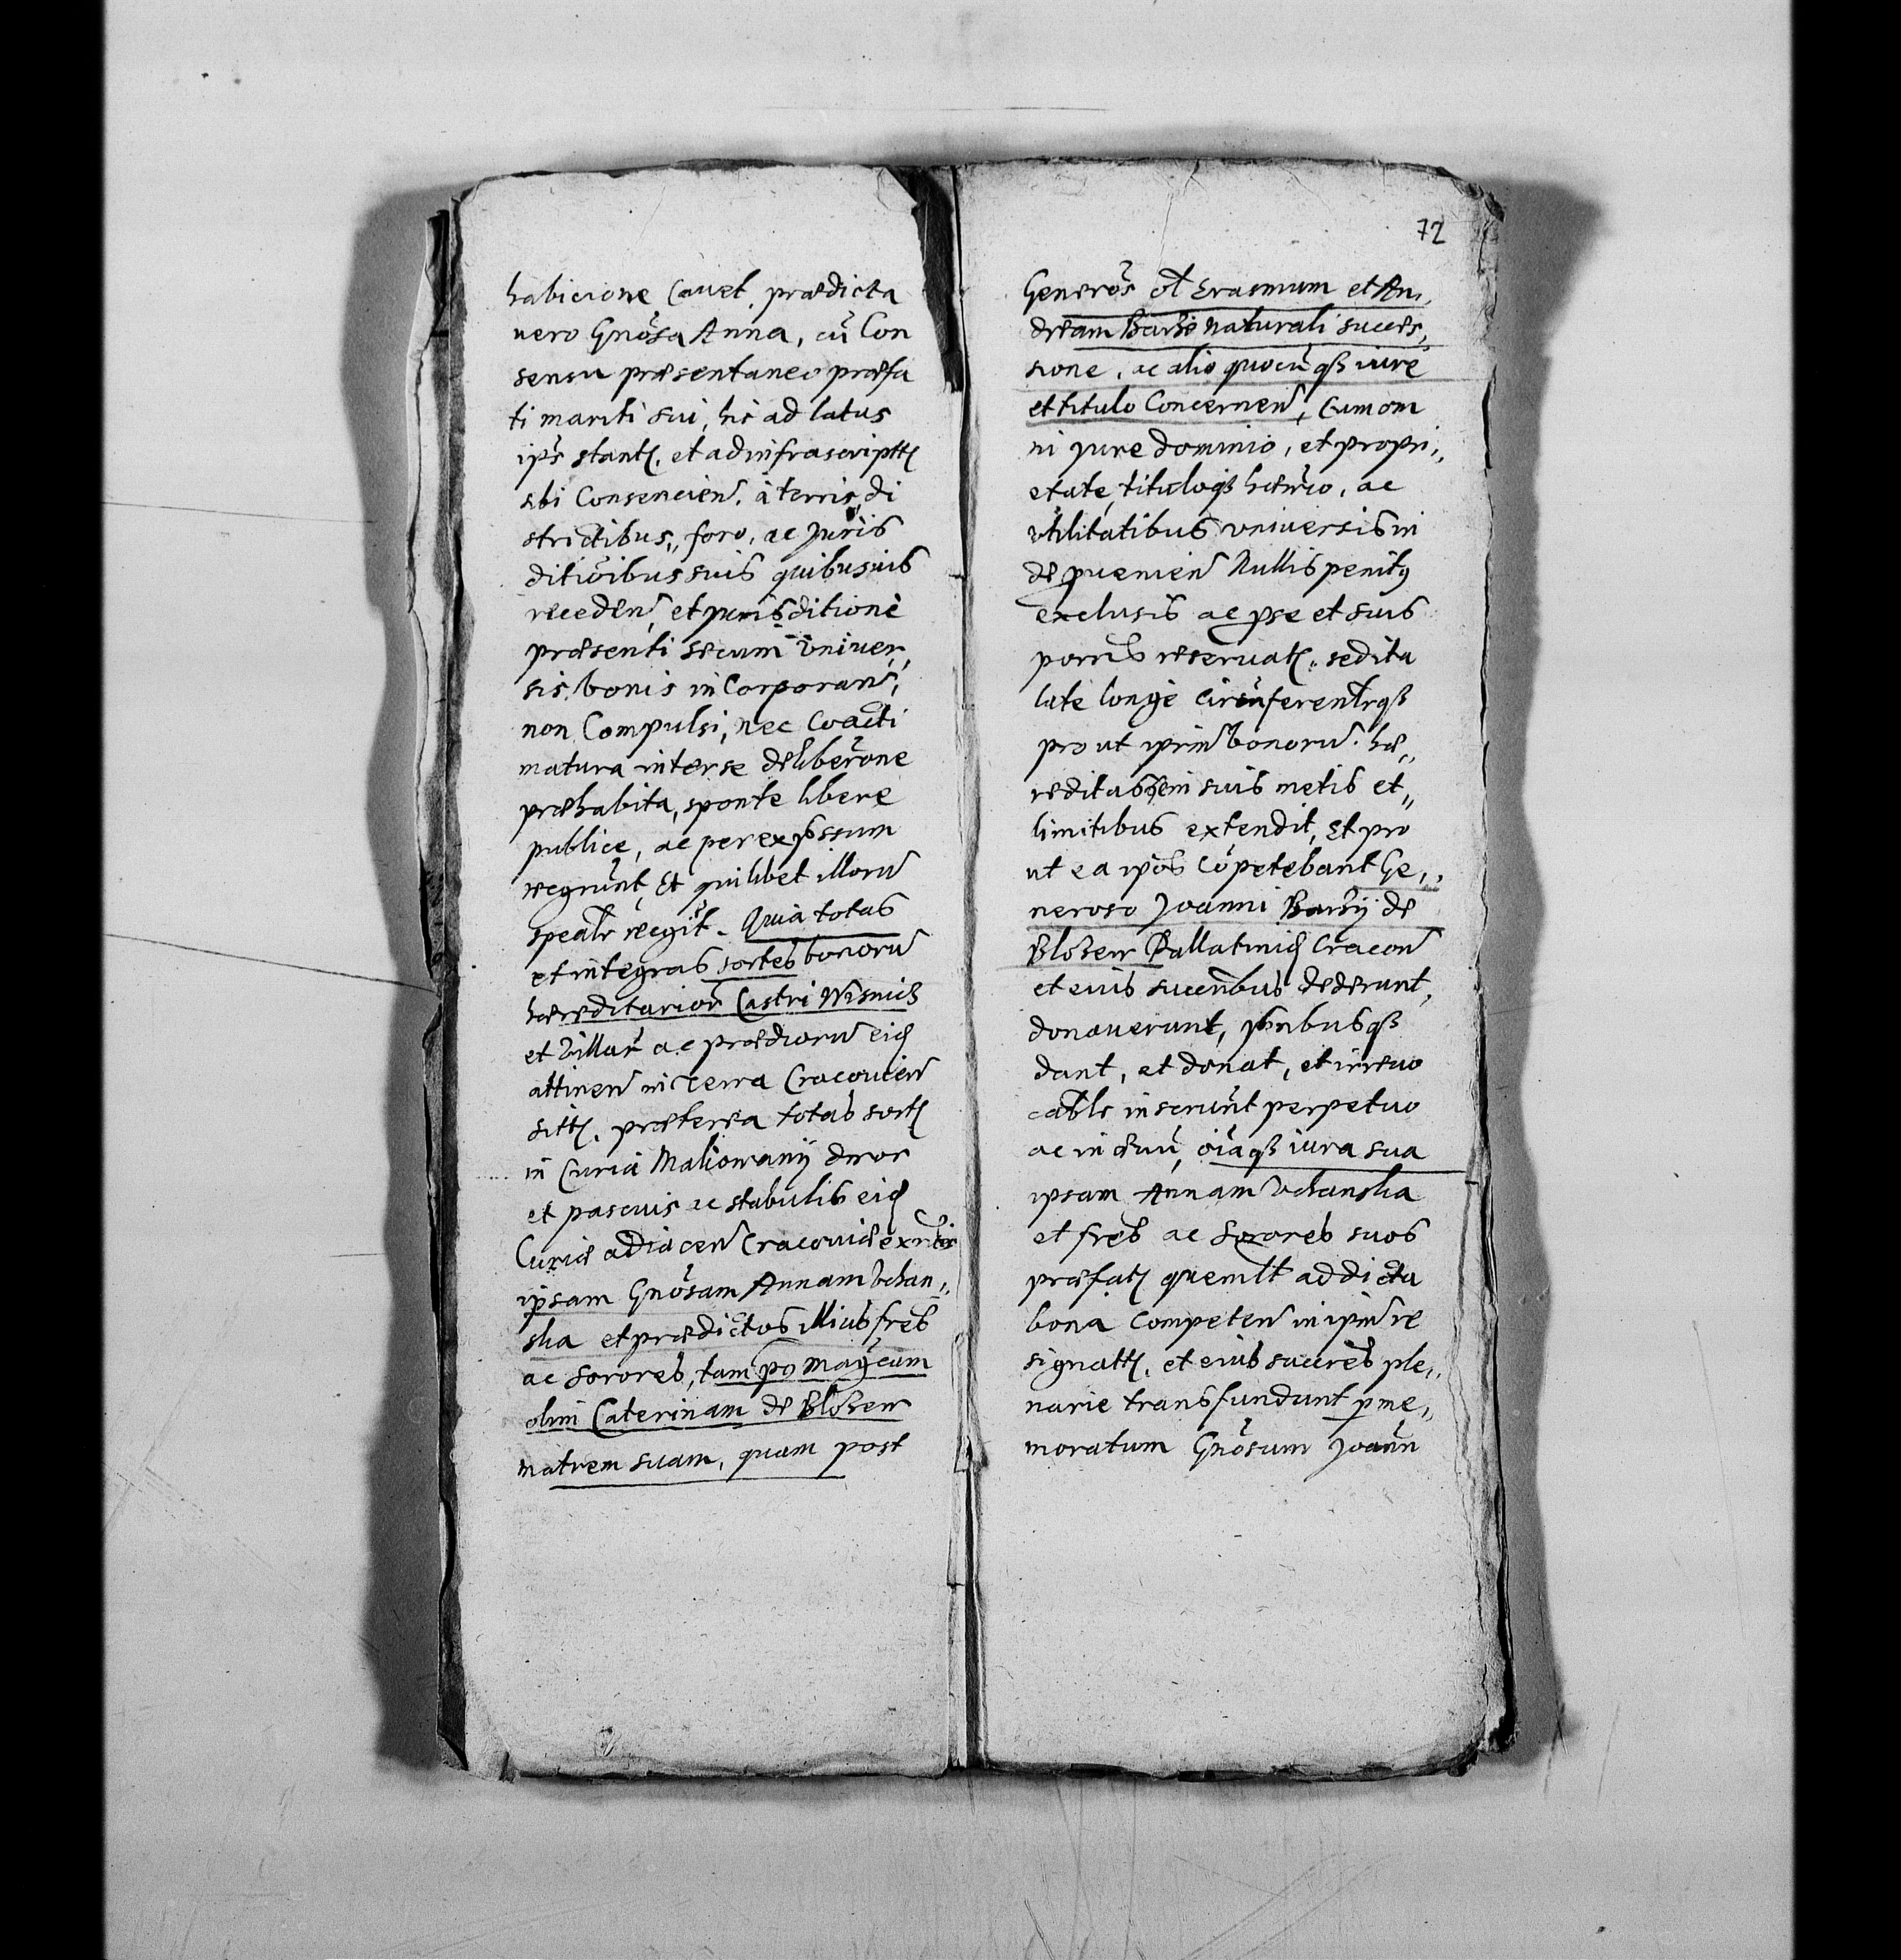 habicione Cavet, prædicta
vero Gnõsa Anna, cũ Con
sensu præsentaneo præfa
ti mariti sui, hic ad latus
ip̃s stantꝭ, et ad infrascripttꝭ
sibi Consencien̄. à terris, di
strictibus, foro, ac Juris
ditiõibus suis quibusvis
receden̄, et jurisditioni
præsenti se cum univer„
sis bonis in Corporan̄,
non Compulsi, nec Coacti
matura inter se delibeřone
præhabita, sponte libere
publice, ac per expssum
recgrũnt, Et quilibet illorũ
spealr recgit. Quia totas
et integras sortes bonorũ
hæreditarior Castri Wisnicz
et villar ac prædiorũ eid
attinen̄ in terra Cracovien̄
sittꝭ, præterea totas sortꝭ
in Curia Maliowanÿ dwor
et pascuis ac stabulis eid
Curiæ adiacen̄ Cracoviæ
ipsam Gnõsam Annam Vchan„
ska et prædictos illius freš
ac Sorores, tam ꝑ Mag̃cam
olim Caterinam de Blozew
matrem suam, quam post
72
Generõs ol Erasmum et An„
dream Barzi naturali succes„
sione, ac alio quocũqꝫ iure
et titulo Concernen̄, Cum om
ni jure dominio, et propri„
etate, tituloqꝫ hærio, ac
utilitatibus universis in
de ꝓvenien̄ Nullis penitꝰ
exclusis ac ꝑ se et suis
porris reservatꝭ. sed ita
late longè circũferentrqꝫ
pro ut ipm̃ bonorũ hæ„
reditas em in suis metis et„
limitibus extendit, Et pro
ut ea ipõs cõpetebant Ge„
neroso Joanni Barzij de
Blozew Pallatinid Cracon̄
et eius succribus dederunt,
donaverunt, pñtibusqꝫ
dant, et donat, et irrevo
cablr inscrũnt perpetuo
ac in ævũ, oĩaqꝫ iura sua
ipsam Annam Vchanska
et freš ac Sorores suos
præfatꝭ quemlt ad dicta
bona Competen̄ in ipm̃ re
signattꝭ, et eius succreš ple„
narie transfundunt ꝑ me„
moratum Gnõsum Joãnn